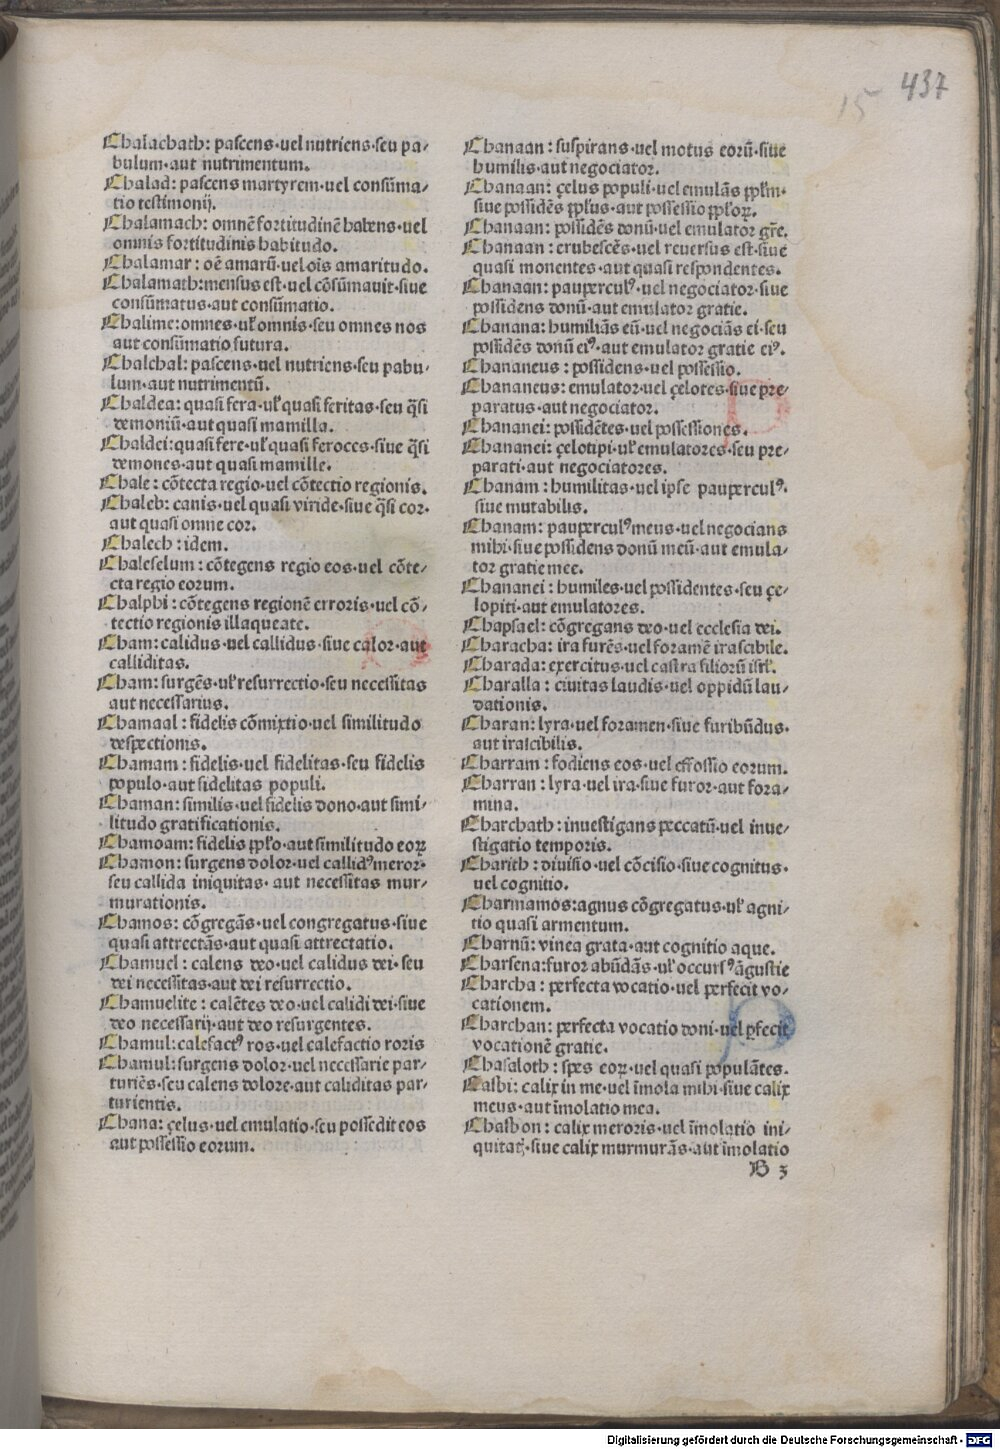 15 437
Chalachath: pascens·uel nutriens·seu pa/
bulum·aut nutrimentum.
Chalad: pascens martyrem·uel consũma/
tio testimonij.
Chalamach: omnẽ fortitudinẽ habens·uel
omnis fortitudinis habitudo.
Chalamar: oẽ amarũ·uel oĩs amaritudo.
Chalamath:mensus est·uel cõsũmauit·siue
consũmatus·aut consũmatio.
Chalime:omnes·ul omnis·seu omnes nos
aut consũmatio futura.
Chalchal: pascens·uel nutriens·seu pabu/
lum·aut nutrimentũ.
Chaldea: quasi fera·ul quasi feritas·seu q̃si
demoniũ·aut quasi mamilla.
Chaldei:quasi fere·ul quasi feroces·siue q̃si
demones·aut quasi mamille.
Chale: cõtecta regio·uel cõtectio regionis.
Chaleb: canis·uel quasi viride·siue q̃si cor·
aut quasi omne cor.
Chalech: idem.
Chaleselum: cõtegens regio eos·uel cõte/
cta regio eorum.
Chalphi: cõtegens regionẽ erroris·uel cõ/
tectio regionis illaqueate.
Cham: calidus·uel callidus·siue calor·aut
calliditas.
Cham: surgẽs·ul resurrectio·seu necessitas
aut necessarius.
Chamaal: fidelis cõmixtio·uel similitudo
despectionis.
Chamam: fidelis·uel fidelitas·seu fidelis
populo·aut fidelitas populi.
Chaman: similis·uel fidelis dono·aut simi/
litudo gratificationis.
Chamoam: fidelis ppło·aut similitudo eoꝝ
Chamon: surgens dolor·uel callidꝰ meror·
seu callida iniquitas· aut necessitas mur/
murationis.
Chamos: cõgregãs·uel congregatus·siue
quasi attrectãs·aut quasi attrectatio.
Chamuel: calens deo·uel calidus dei·seu
dei necessitas·aut dei resurrectio.
Chamuelite: calẽtes deo·uel calidi dei·siue
deo necessarij·aut deo resurgentes.
Chamul:calefactꝰ ros·uel calefactio roris
Chamul:surgens dolor·uel necessarie par/
turiẽs·seu calens dolore·aut caliditas par/
turientis.
Chana: çelus·uel emulatio·seu possedit eos
aut possessio eorum.
Chanaan: suspirans·uel motus eorũ·siue
humilis·aut negociator.
Chanaan: çelus populi·uel emulãs ppłm·
siue possidẽs ppłus·aut possessio ppłoꝝ.
Chanaan: possidẽs donũ·uel emulator gr̃e.
Chanaan: erubescẽs·uel reuersus est·siue
quasi monentes·aut quasi respondentes.
Chanaan: pauperculꝰ·uel negociator·siue
possidens donũ·aut emulator gratie.
Chanana: humiliãs eũ·uel negociãs ei·seu
possidẽs donũ eiꝰ·aut emulator gratie eiꝰ.
Chananeus: possidens·uel possessio.
Chananeus: emulator·uel çelotes·siue pre/
paratus·aut negociator.
Chananei: possidẽtes·uel possessiones.
Chananei: çelotipi·ul emulatores·seu pre/
parati·aut negociatores.
Chanam: humilitas·uel ipse pauperculꝰ·
siue mutabilis.
Chanam: pauperculꝰ meus·uel negocians
mihi·siue possidens donũ meũ·aut emula/
tor gratie mee.
Chananei: humiles·uel possidentes·seu çe/
lopiti·aut emulatores.
Chapsael: cõgregans deo·uel ecclesia dei.
Characha: ira furẽs·uel foramẽ irascibile.
Charada: exercitus·uel castra filiorũ isrl̃.
Charalla: ciuitas laudis·uel oppidũ lau/
dationis.
Charan: lyra·uel foramen·siue furibũdus·
aut irascibilis.
Charram: fodiens eos·uel effossio eorum.
Charran: lyra·uel ira·siue furor·aut fora/
mina.
Charchath: inuestigans peccatũ·uel inue/
stigatio temporis.
Charith: diuisio·uel cõcisio·siue cognitus·
uel cognitio.
Charmamos:agnus cõgregatus·ul agni/
tio quasi armentum.
Charnũ: vinea grata·aut cognitio aque.
Charsena:furor abũdãs·ul occursꝰ ãgustie
Charcha: perfecta vocatio·uel perfecit vo/
cationem.
Charchan: perfecta vocatio doni·uel ꝑfecit
vocationẽ gratie.
Chasaloth: spes eoꝝ·uel quasi populãtes.
Casbi: calix in me·uel ĩmola mihi·siue calix
meus·aut ĩmolatio mea.
Chasbon: calix meroris·uel ĩmolatio ini/
quitat̃·siue calix murmurãs·aut ĩmolatio
B 3
Digitalisierung gefördert durch die Deutsche Forschungsgemeinschaft - DFG